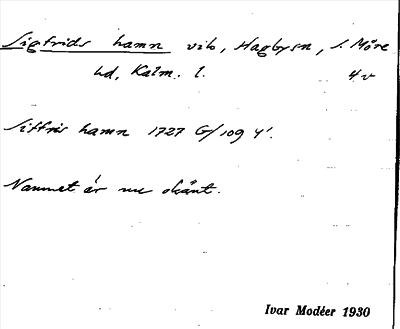 Sigfrids hamn vik, Hagbysn, S. Möre
hd, Kalm. l. 4 v
Siffris hamn 1727 G/109 4'.
Namnet är nu okänt.
Ivar Modéer 1930